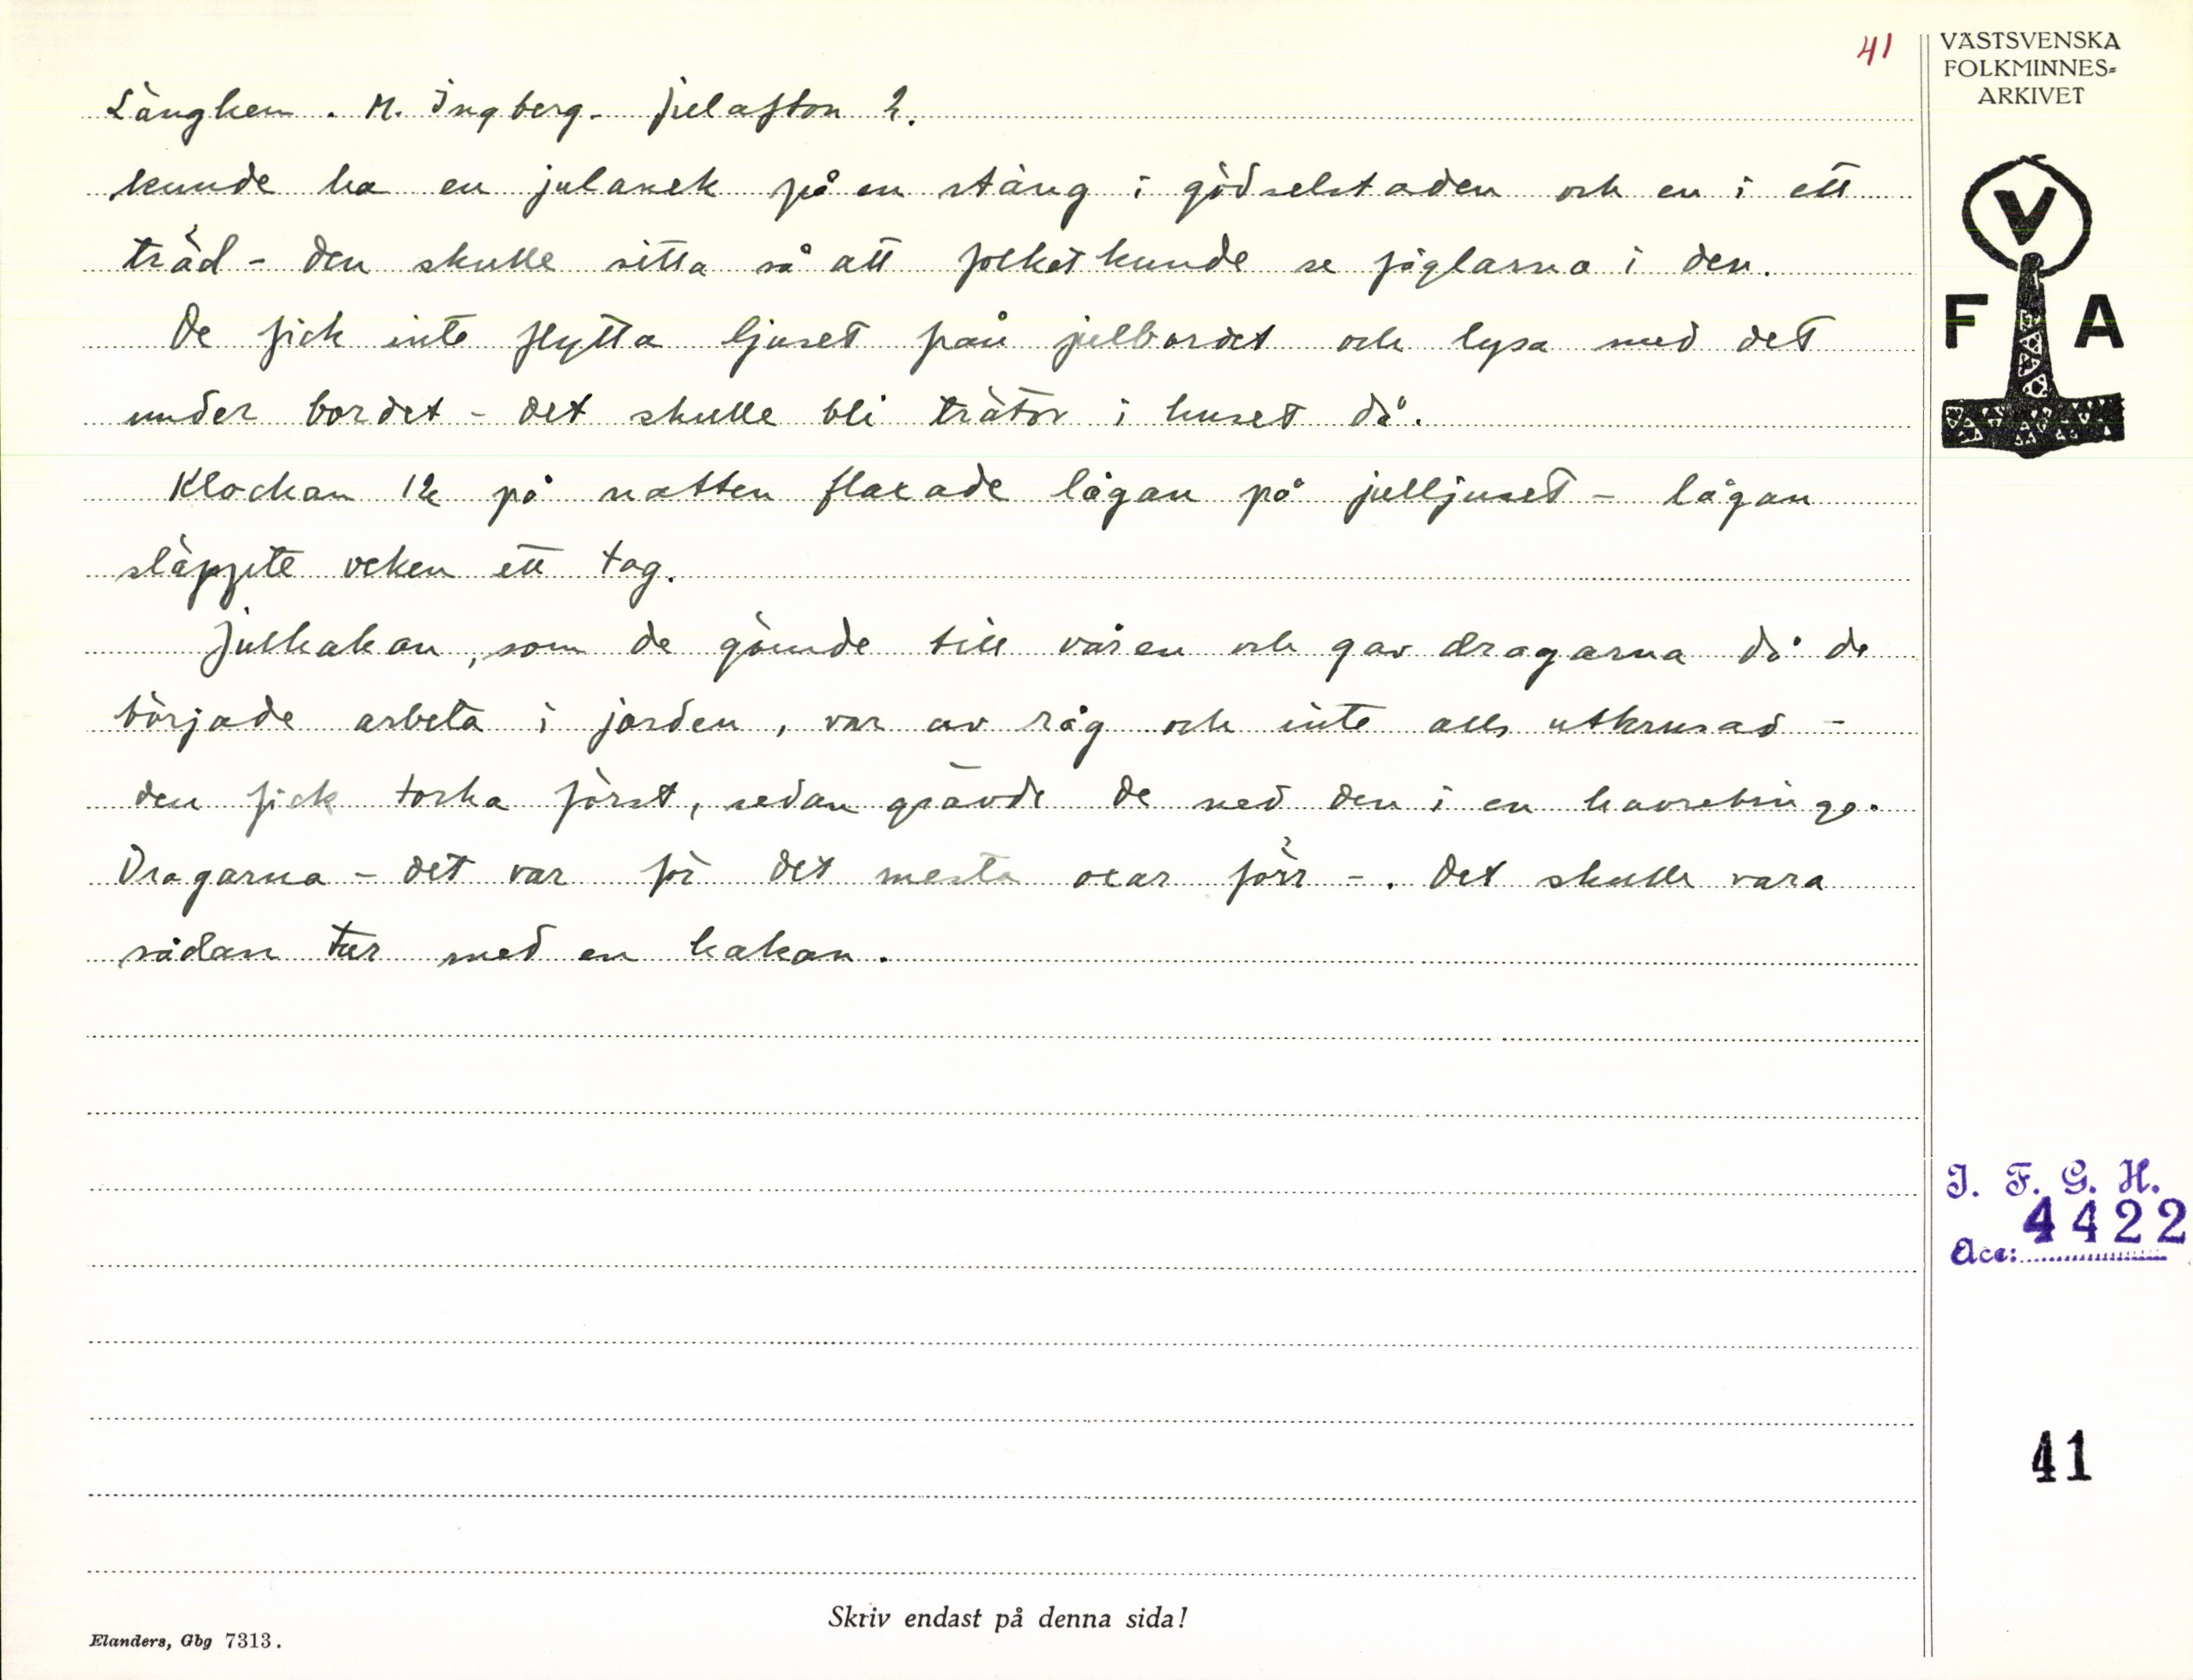 41
VÄSTSVENSKA
FOLKMINNES=
ARKIVET
Länghem. M. Ingberg. Julafton 2.
kunde ha en julanek på en stång i gödselstaden och en i ett
träd - den skulle sitta så att folket kunde se fåglarna i den.
De fick inte flytta ljuset från julbordet och lysa med det
under bordet - det skulle bli trätor i huset då.
Klockan 12 på natten flaxade lågan på julljuset - lågan
släppte veken ett tag.
Julkakan, som de gömde till våren och gav dragarna då de
började arbeta i jorden, var av råg och inte alls utkrusad -
den fick torka först, sedan grävde de ned den i en havrebinge.
Dragarna - det var för det mesta oxar förr -. Det skulle vara
sådan tur med en kakan.
V
F A
I. F. G. H.
4422
Acc:
41
Skriv endast på denna sida!
Elanders, Gbg 7313.